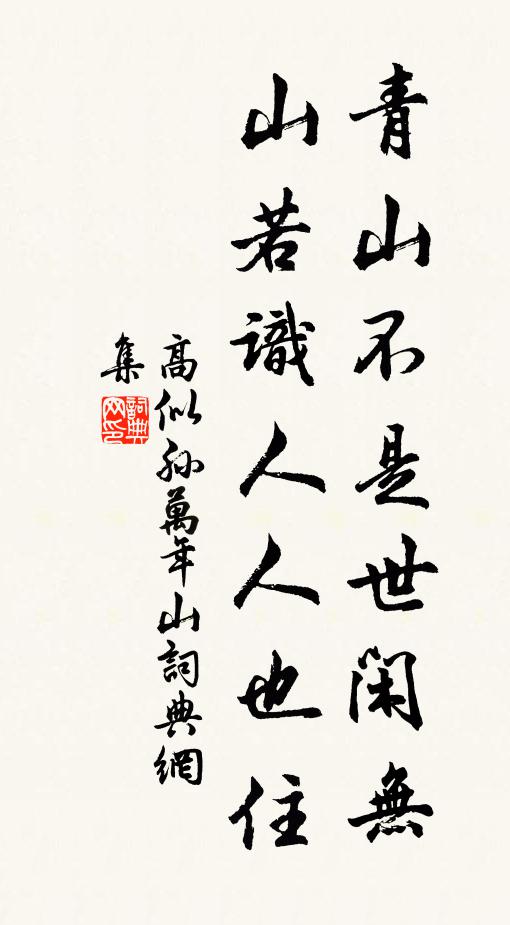 青山不是世閑無
山若識人人也住
高似孫萬年山詞典網
集
詞典
网印